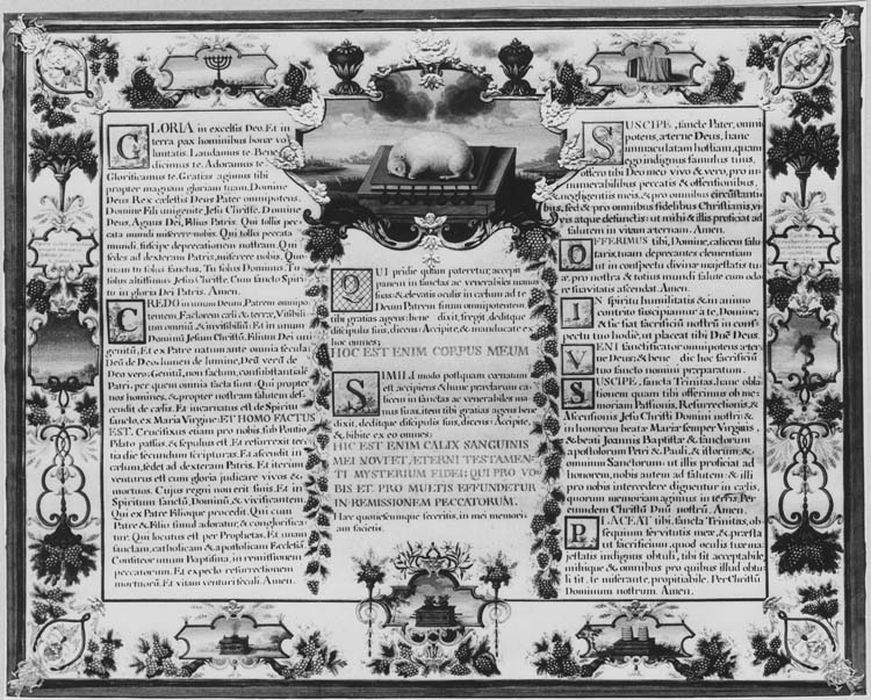 GLORIA in excelsis Deo. Et in
terra pax hominibus bonæ vo
luntatis. Laudamus te. Bene
dicimus te. Adoramus te
Glorificamus te. Gratias agimus tibi
propter magnam gloriam tuam. Domine
Deus Rex cælestis Deus Pater omnipotens.
Domine Fili unigenite Jesu Christe. Domine
Deus, Agnus Dei, Filius Patris. Qui tollis pec
cata mundi miserere nobis. Qui tollis peccata
mundi, suscipe deprecationem nostram. Qui
sedes ad dexteram Patris, miserere nobis. Quo
niam tu solus sanctus. Tu solus Dominus. Tu
solus altissimus Jesu Christe. Cum sancto Spiri
tu in gloria Dei Patris. Amen.
CREDO in unum Deum, Patrem omnipo
tentem, Factorem cæli & terræ, Visibili
um omniũ, & invisibiliũ: Et in unum
Dominũ Jesum Christũ, Filium Dei uni
genitũ, Et ex Patre natum ante omnia sæcula,
Deũ de Deo, lumen de lumine, Deũ verũ de
Deo vero: Genitũ, non factum, consubstantialẽ
Patri: per quem omnia facta sunt: Qui propter
nos homines, & propter nostram salutem des
cendit de cælis. Et incarnatus est de Spiritu
sancto, ex Maria Virgine: ET HOMO FACTUS
EST. Crucifixus etiam pro nobis, sub Pontio
Pilato passus, & sepultus est. Et resurrexit ter
tia die secundum scripturas. Et ascendit in
cælum, sedet ad dexteram Patris. Et iterum
venturus est cum gloria judicare vivos &
mortuos. Cujus regni non erit finis. Et in
Spiritum sanctũ, Dominũ, & vivificantem,
Qui ex Patre Filioque procedit. Qui cum
Patre & Filio simul adoratur, & conglorifica
tur. Qui locutus est per Prophetas. Et unam
sanctam, catholicam & apostolicam Ecclesiã.
Confiteor unum Baptisma, in remissionem
peccatorum. Et expecto resurrectionem
mortuorũ. Et vitam venturi sæculi. Amen.
QUI pridie quam pateretur, accepit
panem in sanctas ac venerabiles manus
suas: & elevatis oculis in cælum ad te
Deum Patrem suum omnipotentem,
tibi gratias agens: bene dixit, fregit, deditque
discipulis suis, dicens: Accipite, & manducate ex
hoc omnes;
HOC EST ENIM CORPUS MEUM
SIMILI modo postquam cœnatum
est accipiens & hunc præclarum ca
licem in sanctas ac venerabiles ma
nus suas, item tibi gratias agens bene
dixit, deditque discipulis suis, dicens: Accipite,
& bibite ex eo omnes;
HIC EST ENIM CALIX SANGUINIS
MEI NOVI ET, ETERNI TESTAMEN-
TI MYSTERIUM FIDEI; QUI PRO VO-
BIS ET PRO MULTIS EFFUNDETUR
IN REMISSIONEM PECCATORUM.
Hæc quotiescumque feceritis, in mei memori-
am facietis.
SUSCIPE, sancte Pater, omni
potens, æterne Deus, hanc
immaculatam hostiam, quam
ego indignus famulus tuus,
offero tibi Deo meo vivo & vero, pro in-
numerabilibus peccatis & offensionibus,
& negligentiis meis, & pro omnibus circũstanti
bus, sed & pro omnibus fidelibus Christianis, vi
vis atque defunctis: ut mihi & illis proficiat ad
salutem in vitam æternam. Amen.
OFFERIMUS tibi, Domine, calicem salu
taris, tuam deprecantes clementiam
ut in conspectu divinæ majestatis tu
æ, pro nostra & totius mundi salute cum odo
re suavitatis ascendat. Amen.
IN spiritu humilitatis & in animo
contrito suscipiamur a te, Domine;
& sic fiat sacrificiũ nostrũ in cons
pectu tuo hodie, ut placeat tibi Dñe Deus.
VENI sanctificator omnipotens æter
ne Deus: & bene dic hoc sacrificiũ
tuo sancto nomini præparatum.
SUSCIPE, sancta Trinitas, hanc obla
tionem quam tibi offerimus ob me:
moriam Passionis, Resurrectionis, &
Ascensionis Jesu Christi Domini nostri: &
in honorem beatæ Mariæ semper Virginis,
& beati Joannis Baptistæ & sanctorum
apostolorum Petri & Pauli, & istorum: &
omnium Sanctorum: ut illis proficiat ad
honorem, nobis autem ad salutem: & illi
pro nobis intercedere dignentur in cælis,
quorum memoriam agimus in terris. Per
eumdem Christũ Dnũ nostrũ. Amen.
PLACEAT tibi, sancta Trinitas, ob
sequium servitutis meæ, & præsta
ut sacrificium, quod oculis tuæ ma
jestatis indignus obtuli, tibi sit acceptabile,
mihique & omnibus pro quibus illud obtu
li sit, te miserante, propitiabile. Per Christũ
Dominum nostrum. Amen.